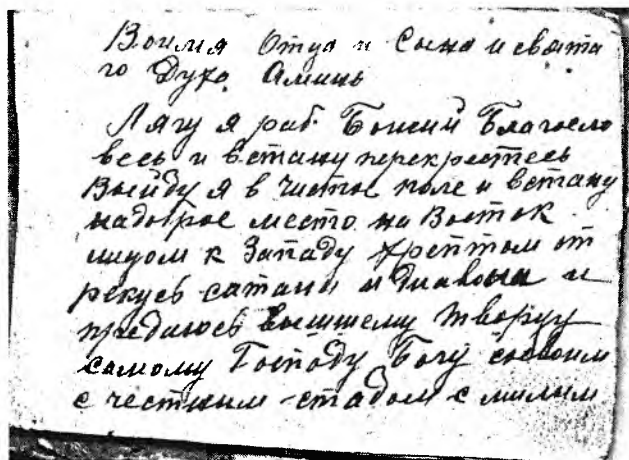 Воимя Отца и Сына и свята
го Духа Аминь
Лягу я раб Божий Благосло
весь и встану перекрестесь
Выйду я в чистое поле и встану
надоброе место на Восток
лицом к Западу хрептом от
рекусь сатани и диавола и
предаюсь вышнему творцу
самому Господу Богу своим
с честным стадом с милым